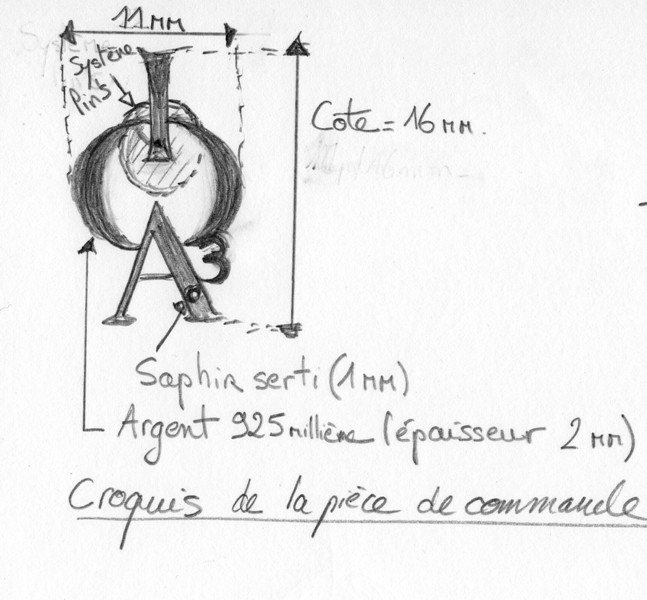 11 mm
Système
Pin's
Cote = 16 mm.
A3
Saphir serti (1 mm)
Argent 925 millième (épaisseur 2 mm)
Croquis de la pièce de commande